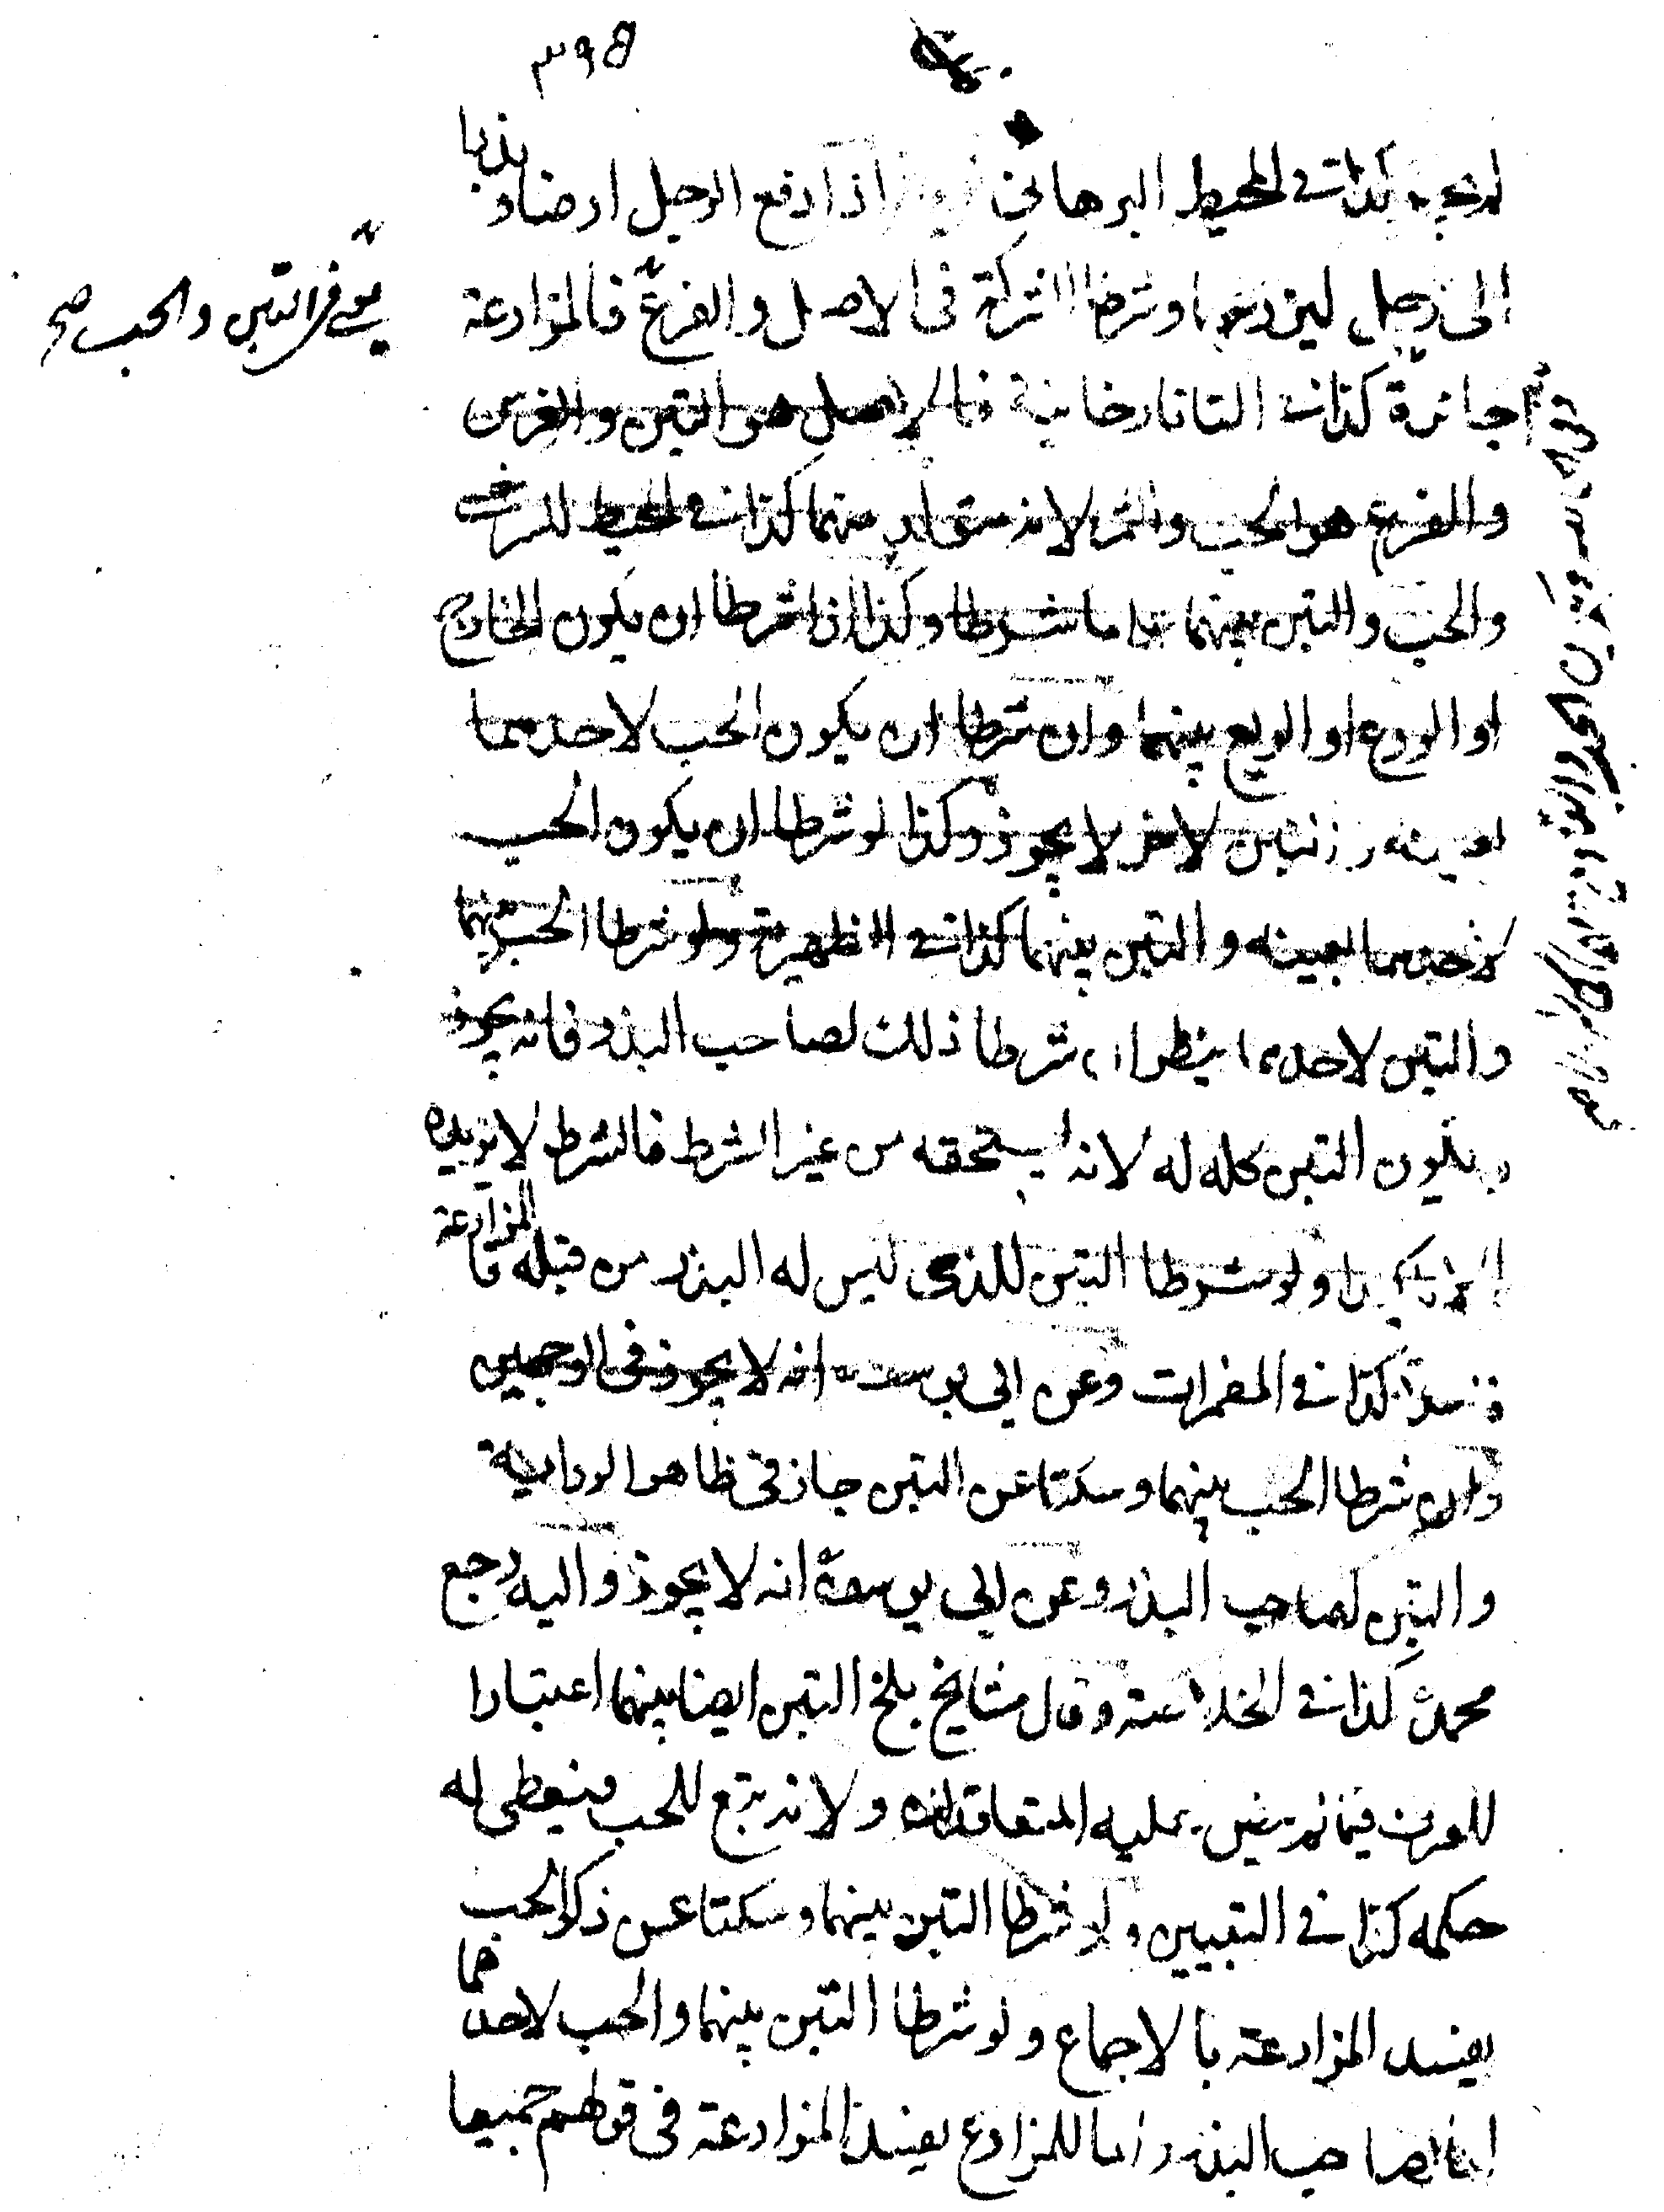 ٣٩٥
كذا في المحيط البرهاني اذا دفع الرجل ارضا وبذرا
الى رجل ليزرعها وشرطا الشركة في الاصل والفرع فالمزارعة
يعني في التبن والحب صح
جائزة كذا في التاتارخانية فالاصل هو التبن والغرس
والفرع هو الحب والثمر لانه متولد منهما كذا في المحيط للسرخسي
والحب والتبن بينهما على ما شرطا وكذا اذا شرطا ان يكون الخارج
او الزرع او الريع بينهما وان شرطا ان يكون الحب لاحدهما
بعينه والتبن للاخر لا يجوز وكذا لو شرطا ان يكون الحب
لاحدهما بعينه والتبن بينهما كذا في الظهيرية ولو شرطا الحب بينهما
والتبن لاحدهما ينظر ان شرطا ذلك لصاحب البذر فانه يجوز
ويكون التبن كله له لانه يستحقه من غير الشرط فالشرط لا يزيده
الا تاكيدا ولو شرطا التبن للذي ليس له البذر من قبله فالمزارعة
فاسدة كذا في المضمرات وعن ابي يوسف انه لا يجوز في الوجهين
وان شرطا الحب بينهما وسكتا عن التبن جاز في ظاهر الرواية
والتبن لصاحب البذر وعن ابي يوسف انه لا يجوز واليه رجع
محمد كذا في الخلاصة وقال مشايخ بلخ التبن ايضا بينهما اعتبارا
للعرف فيما لم ينص عليه المتعاقدان ولانه تبع للحب فيعطى له
حكمه كذا في التبيين ولو شرطا التبن بينهما وسكتا عن ذكر الحب
يفسد المزارعة بالاجماع ولو شرطا التبن بينهما والحب لاحدهما
اما لصاحب البذر واما للمزارع يفسد المزارعة في قولهم جميعا